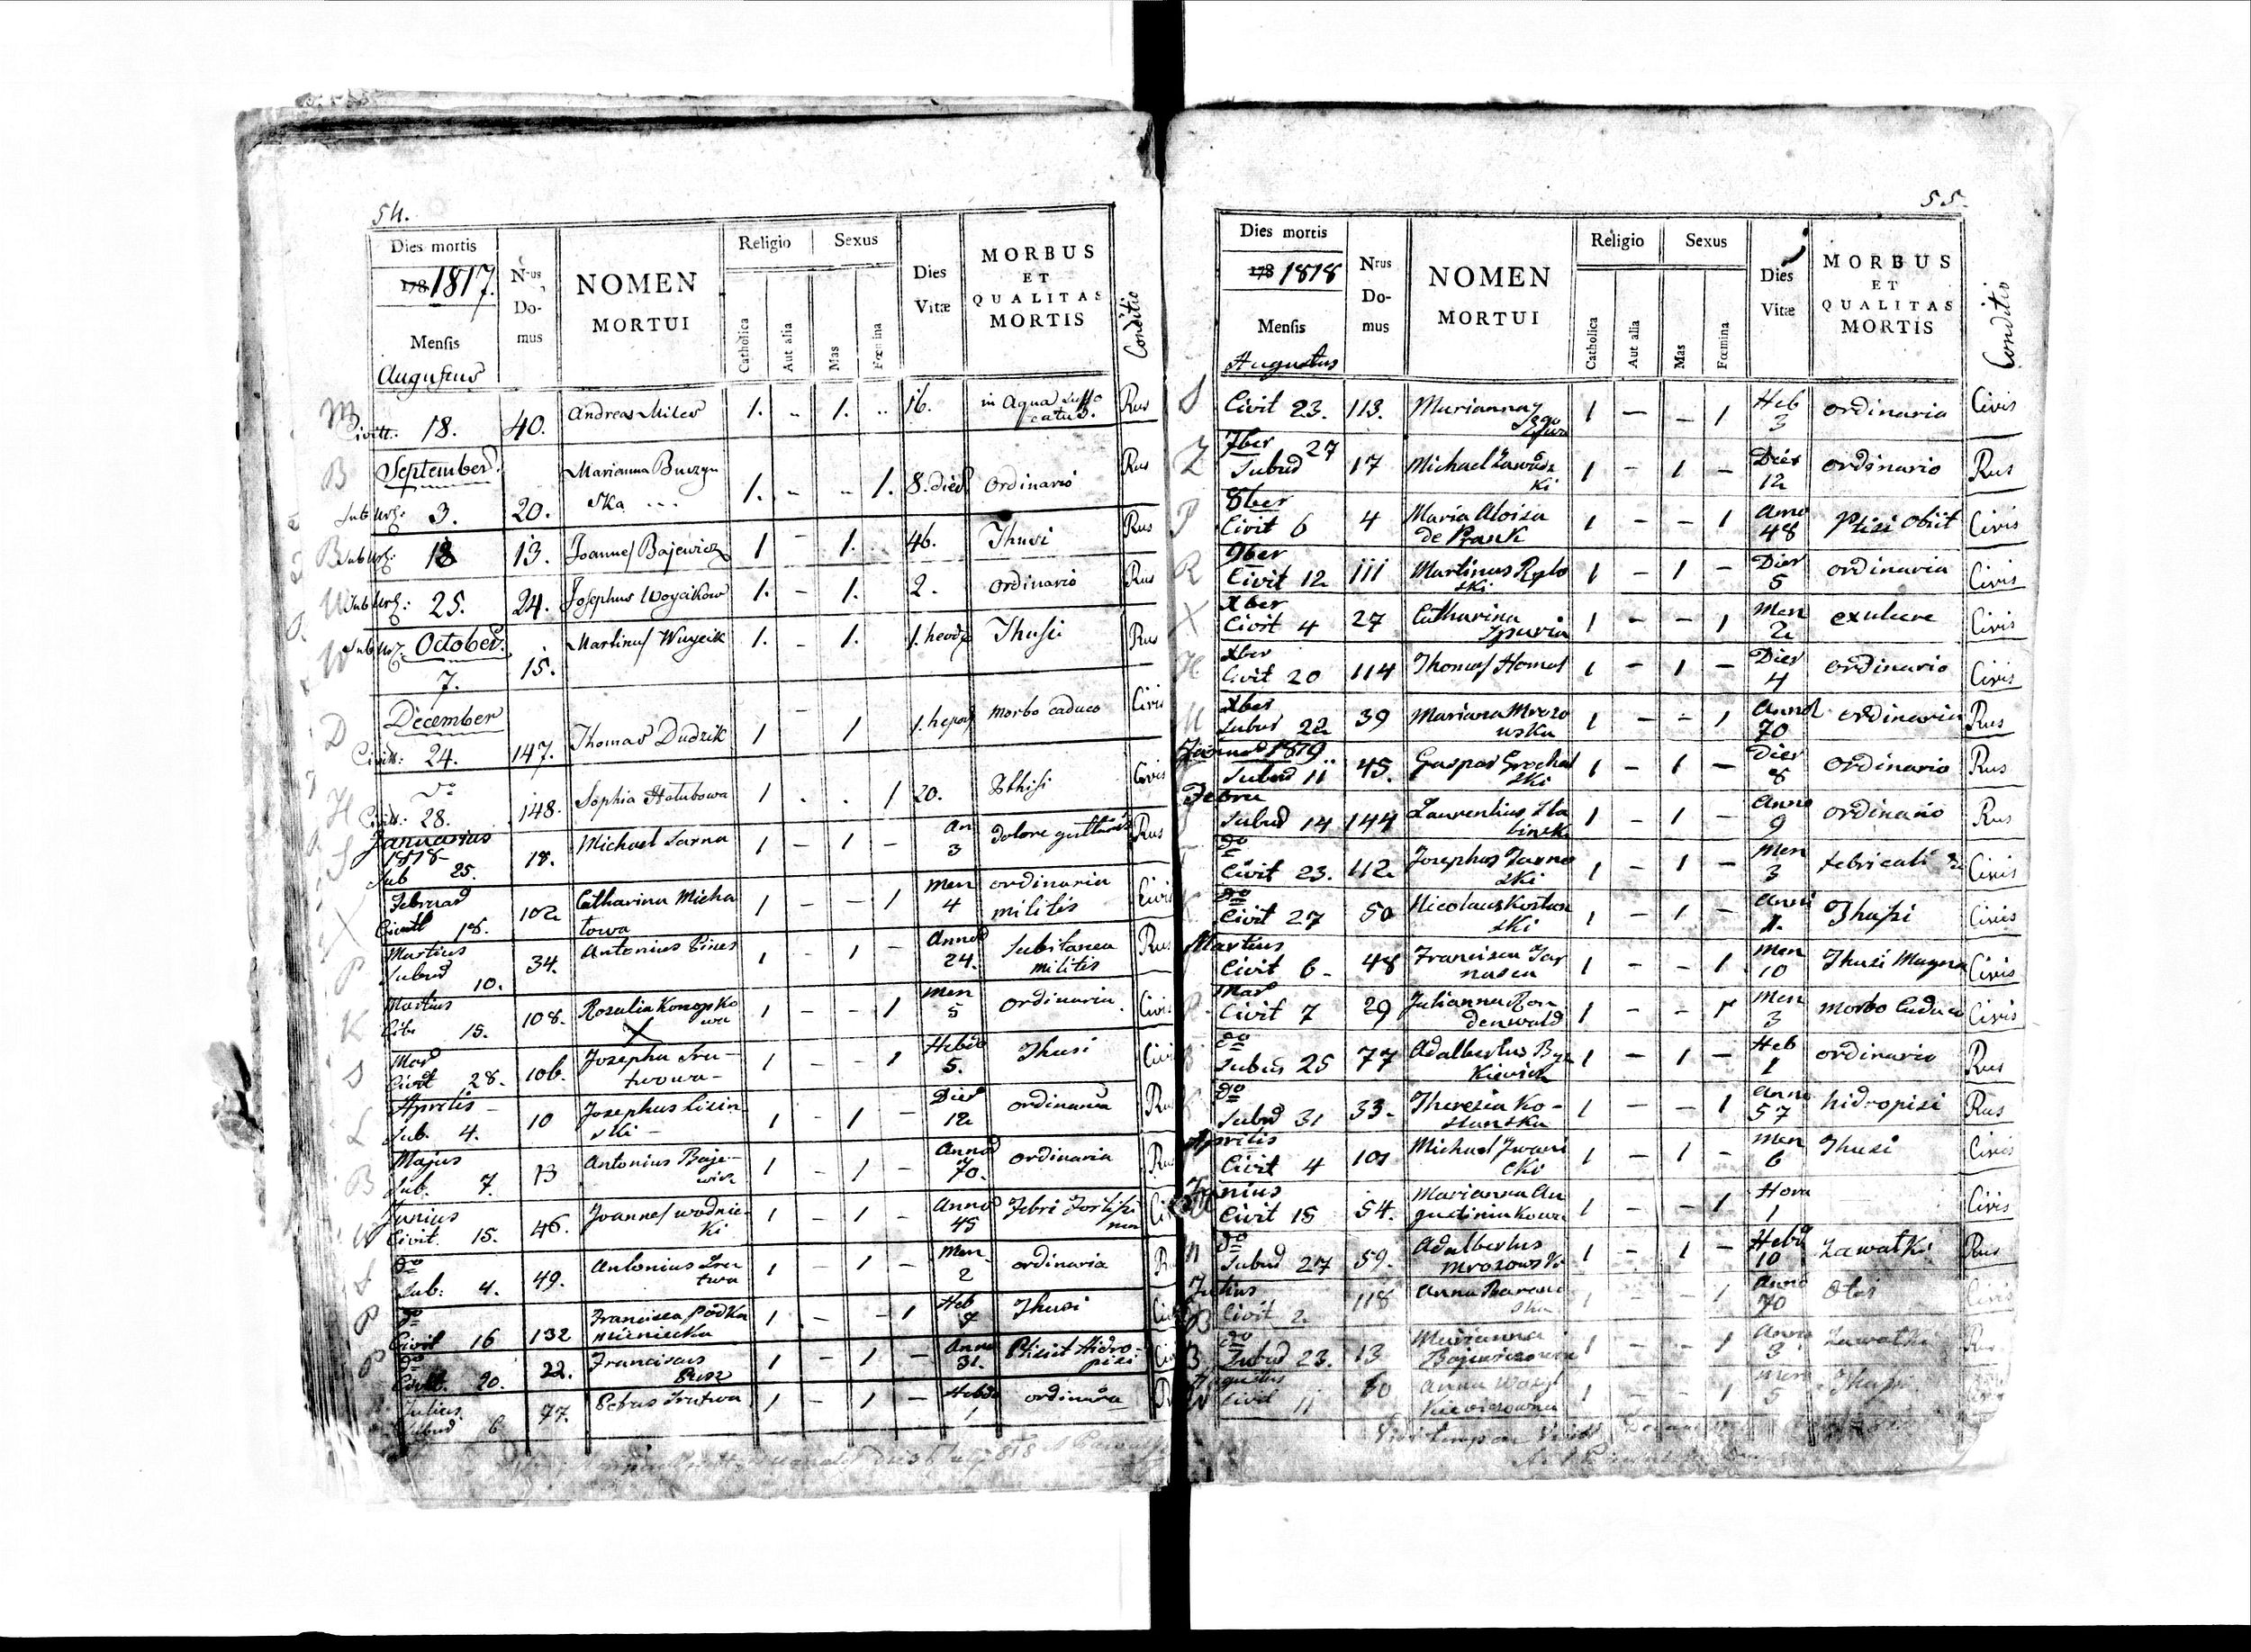 54.
Dies mortis
178 1817.
Mensis
Augustus
Nrus Do-mus
NOMEN MORTUI
Religio
Catholica
Aut alia
Sexus
Mas
Fœmina
Dies Vitæ
MORBUS ET QUALITAS MORTIS
Conditio
M Civitt: 18. 40. Andreas Miles 1. - 1. .. 16. in Aqua suffo
catus. Rus
B September. Marianna Buczyn
Sub Urb: 3. 20. ska ... 1. - .. 1. 8. dies Ordinario Rus
B Sub Urb: 18 13. Joannes Bajewicz 1 - 1. 46. Thusi Rus
W Sub Urb: 25. 24. Josephus Woycikow 1. - 1. 2. ordinario Rus
W Sub Urb: October.
7. 15. Martinus Wuycik 1. - 1. 1. Thusi Rus
D December
Civitt: 24. 147. Thomas Dudzik 1 - 1 1. Morbo caduco Civis
H do
Civitt: 28. 148. Sophia Hałubowa 1 . . 1 20. Pthisi Civis
S Januarius
1818
Sub 25. 18. Michael Sarna 1 - 1 - An
3 dolore gutturis Rus
Februar
Civitt 18. 102 Catharina Micha
towa 1 - - 1 Men
4 ordinaria
militis Civis
P Martius
Subud 10. 34. Antonius 1 - 1 - Annos
24. Subitanea
militis Rus
K Martius
Civ 15. 108. Rosalia Konopko
wa 1 - - 1 Men
5 ordinaria Civis
S Mar
Civit 28. 106. Josepha Sru-
twowa- 1 - - 1 Hebdo
5. Thusi Civi
L Aprilis -
Sub. 4. 10 Josephus Lisin
ski - 1 - 1 - Dies
12 ordinaria Ru
B Majus
Sub. 7. 13 Antonius Baje-
wicz 1 - 1 - Annos
70. ordinaria Ru
W Junius
Civit. 15. 46. Joannes wodnic-
ki 1 - 1 - Annos
45 Febri Ci
S do
Sub: 4. 49. Antonius Sru
twa 1 - 1 - Men
2 ordinaria R
P do
Civit 16 132 Francisca Podka
1 - - 1 Heb
Thusi
P do
Civitt. 20. 22. Franciscus
1 - 1 - Anno
31. Hidro-
pisi
Julius
Subud 6 77. Petrus Srutwa 1 - 1 - Hebdo
1 ordinaria
55.
Dies mortis
178 1818
Mensis
Augustus
Nrus Do-mus
NOMEN MORTUI
Religio
Catholica
Aut alia
Sexus
Mas
Fœmina
Dies Vitæ
MORBUS ET QUALITAS MORTIS
Conditio
S Civit 23. 113. Marianna
1 - - 1 Heb
3 ordinaria Civis
Z 7ber 27
Subud 17 Michael Zawadz
ki 1 - 1 - Dies
12 ordinario Rus
P 8ber
Civit 6 4 Maria Aloisa
de Prank 1 - - 1 Anno
48 Ptisi obiit Civis
R 9ber
Civit 12 111 Martinus Rylo
ski 1 - 1 - Dies
5 ordinaria Civis
X Xber
Civit 4 27 Catharina
Spuria 1 - - 1 Men
2 exulcere Civis
H Xber
Civit 20 114 Thomas Homol 1 - 1 - Dies
4 ordinario Civis
M Xber
Subur 22 39 Mariana Mrozo
wska 1 - - 1 Annos
70 ordinaria Rus
Januar 1819
Subud 11 45. Gaspar Grochol
ski 1 - 1 - Dies
8 ordinario Rus
Febru
Subud 14 144 Laurentius Sła
binski 1 - 1 - Anno
9 ordinario Rus
do
Civit 23. 112 Josephus Tarno
ski 1 - 1 - Men
3 Civis
do
Civit 27 50 Nicolaus Kostan
ski 1 - 1 - Anni
1. Thusi Civis
Martius
Civit 6 - 48 Francisca Tar
nasca 1 - - 1 Men
10 Thusi Magna Civis
R Mar
Civit 7 29 Julianna Ron
denwald 1 - - 1 Men
3 Morbo Caduco Civis
B do
Subur 25 77 Adalbertus By
kievich 1 - 1 - Heb
1 ordinario Rus
K do
Subud 31 33- Theresia Ko-
stanska 1 - - 1 Anno
57 hidropisi Rus
Aprilis
Civit 4 101 Michael Iwani
cki 1 - 1 - Men
6 Thusi Civis
Junius
Civit 15 54. Marianna Au
gustiniakowa 1 - - 1 Hora
1 Civis
M do
Subud 27 59. Adalbertus
Mrozowski 1 - 1 - Hebd
10 Zawalki Rus
Julius
B Civit 2. 118 Anna Baran
ska 1 - - 1 Anno
70 Civis
B do
Subud 23. 13 Marianna
Bajewiczowa 1 - - 1 Anno
3 Zawatki
Augustus
W Civil 11 60 Anna
1 - - 1 Men
5 Thusi